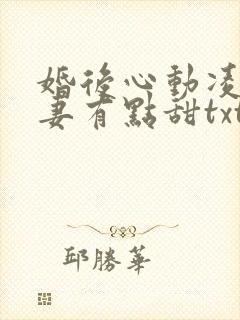 婚後心動凌
妻有點甜txt
邱勝華